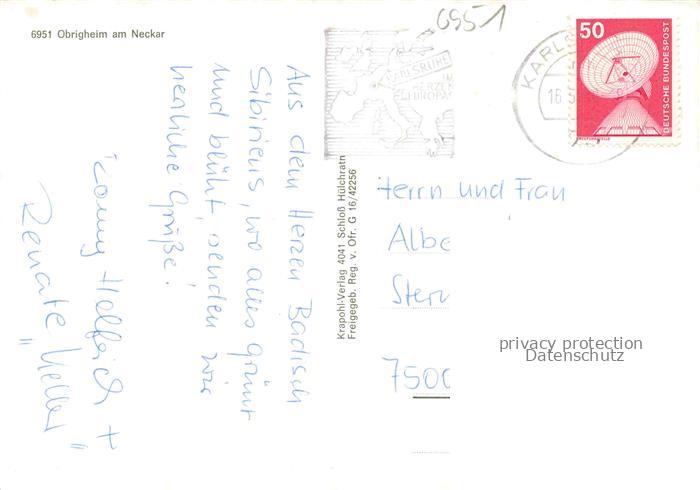 6951 Obrigheim am Neckar
6951
KARLSRUHE
IM
HERZEN
EUROPAS
KARLS
16.5
50
DEUTSCHE BUNDESPOST
Aus dem Herzen Badisch
Sibiriens, wo alles grünt
und blüht, senden wir
herzliche Grüße!
Conny Helfrich +
Renate Heller
Krapohl-Verlag 4041 Schloß Hülchrath
Freigegeb. Reg. v. Ofr. G 16/42256
Herrn und Frau
Albe
Stern
7500
privacy protection
Datenschutz